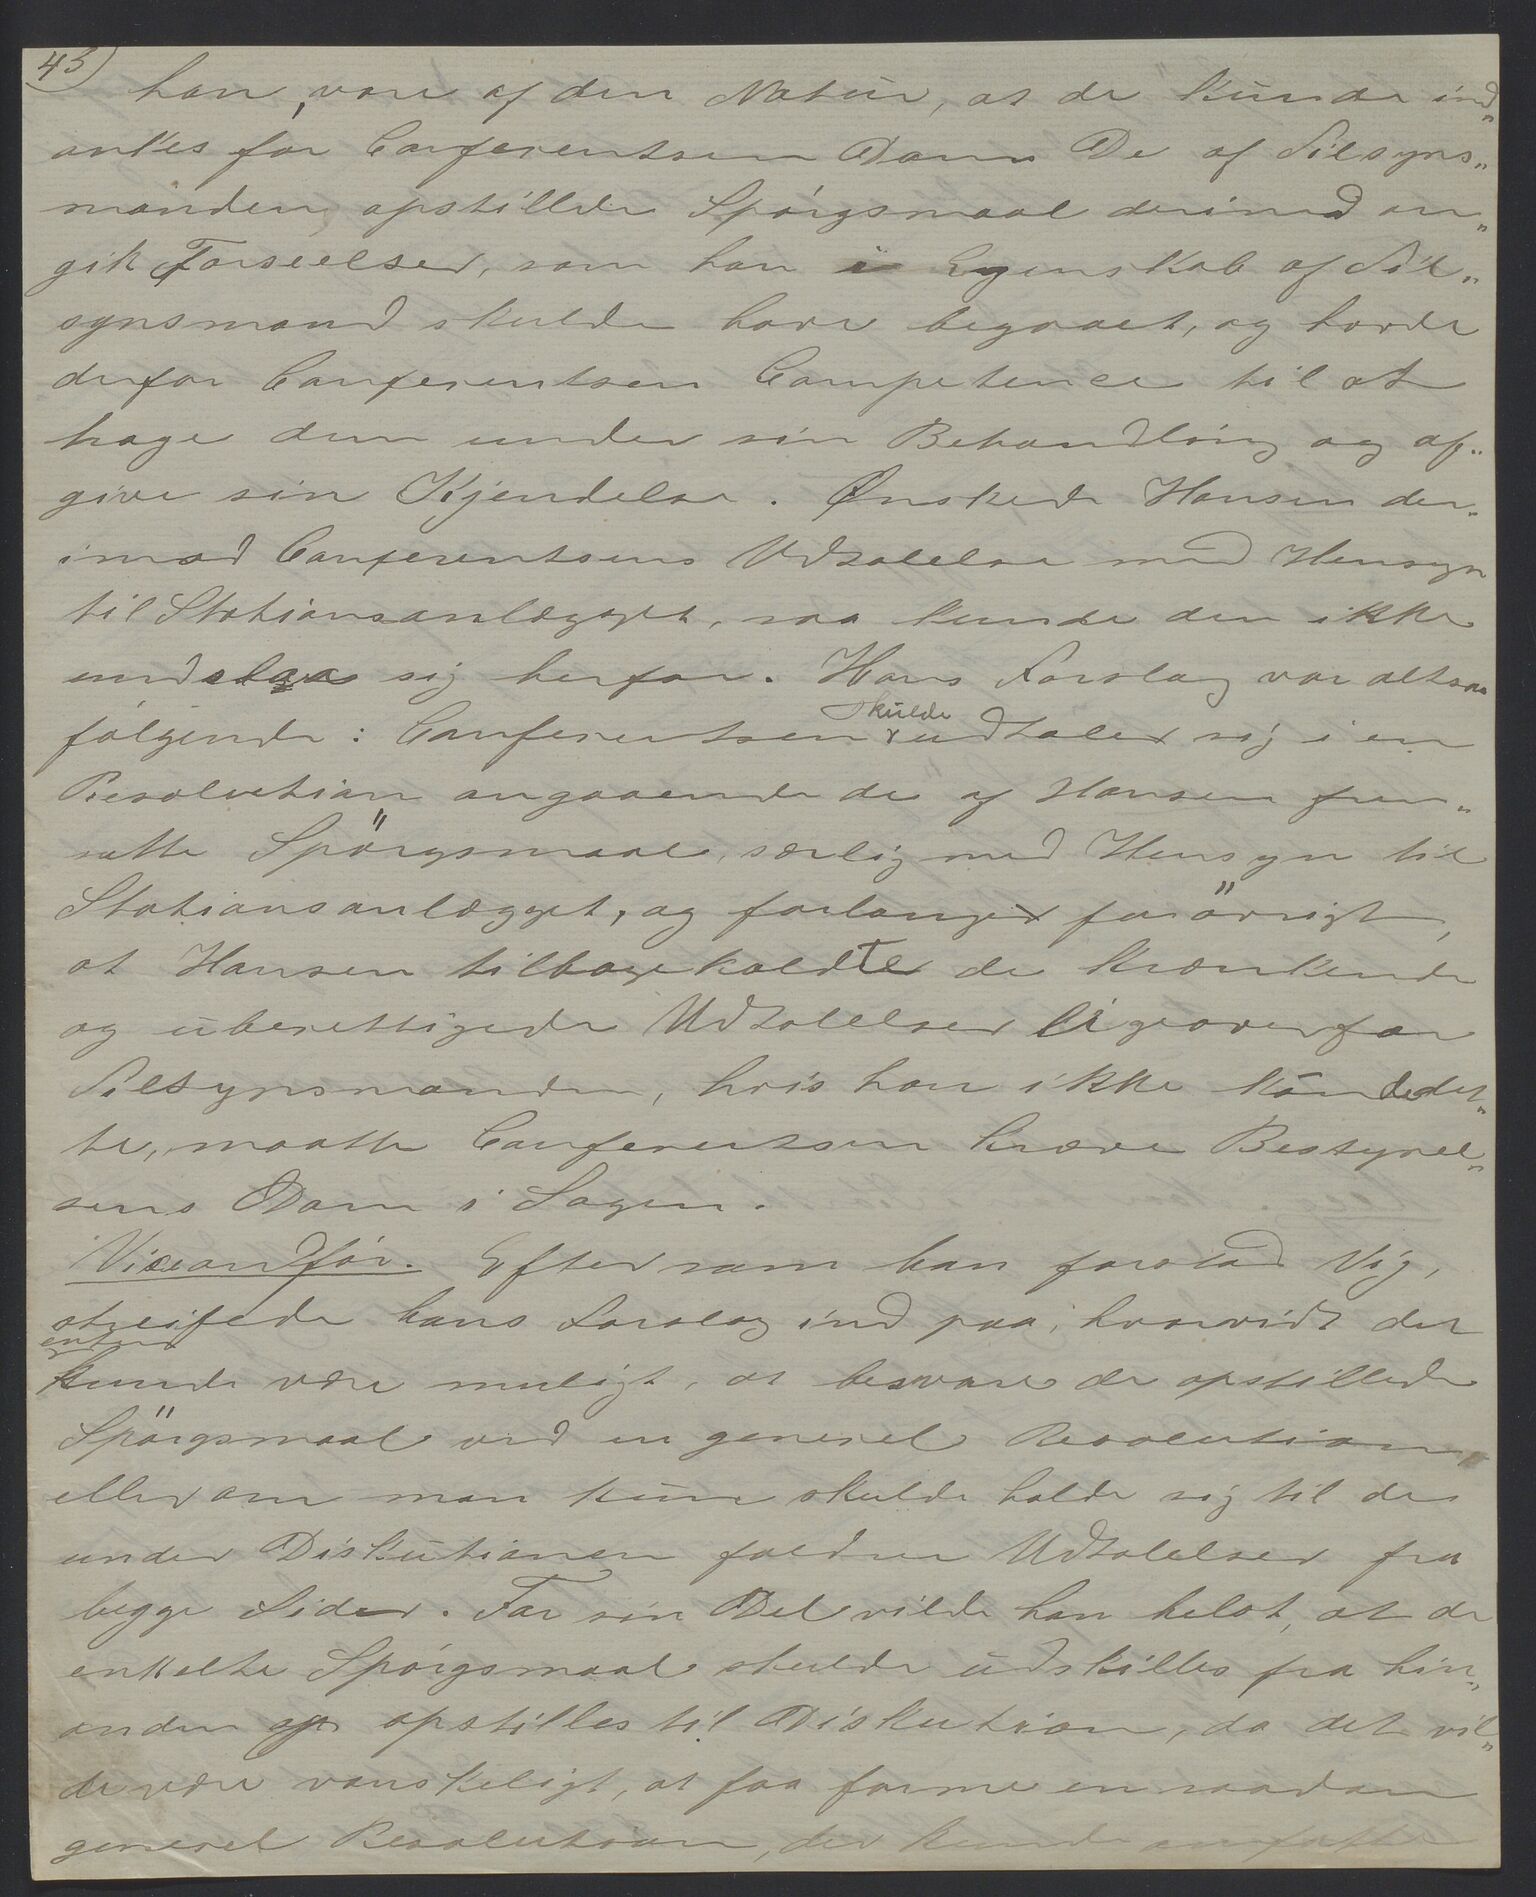 43)
han, vare af den Natur, at de kunde ind„
ankes for Conferentsens Dom. De af Tilsyns„
manden opstillede Spörgsmaal derimod an„
gik Forseelser, som han i Egenskab af Til„
synsmand skulde have begaaet, og havde
derfor Conferentsen Competence til at
tage dem under sin Behandling og af„
give sin Kjendelse. Ønskede Hansen der„
imod Conferentsens Udtalelse med Hensyn
til Stationsanlægget, saa kunde den ikke
undslaa sig herfor. Hans Forslag var altsaa
følgende: Conferentsen skulde udtale sig i en
Resolution angaaende de af Hansen frem„
satte Spörgsmaal, særlig med Hensyn til
Stationsanlægget, og forlanger forövrigt,
at Hansen tilbagekaldte de krænkende
og uberettigede Udtalelser ligeoverfor
Tilsynsmanden, hvis han ikke kunde det„
te, maatte Conferentsen kræve Bestyrel„
sens Dom i Sagen.
Viceordför. Eftersom han forstod Vig,
streifede hans Forslag ind paa, hvorvidt det
enten
kunde være muligt, at besvare de opstillede
Spörgsmaal ved en generel Resolution,
eller om man kun skulde holde sig til de
under Diskutionen faldne Udtalelser fra
begge Sider. For sin Del vilde han helst, at de
enkelte Spörgsmaal skulde udskilles fra hin„
anden og opstilles til Diskution, da det vil„
de være vanskeligt, at faa forme en saadan
generel Resolution, der kunde omfatte